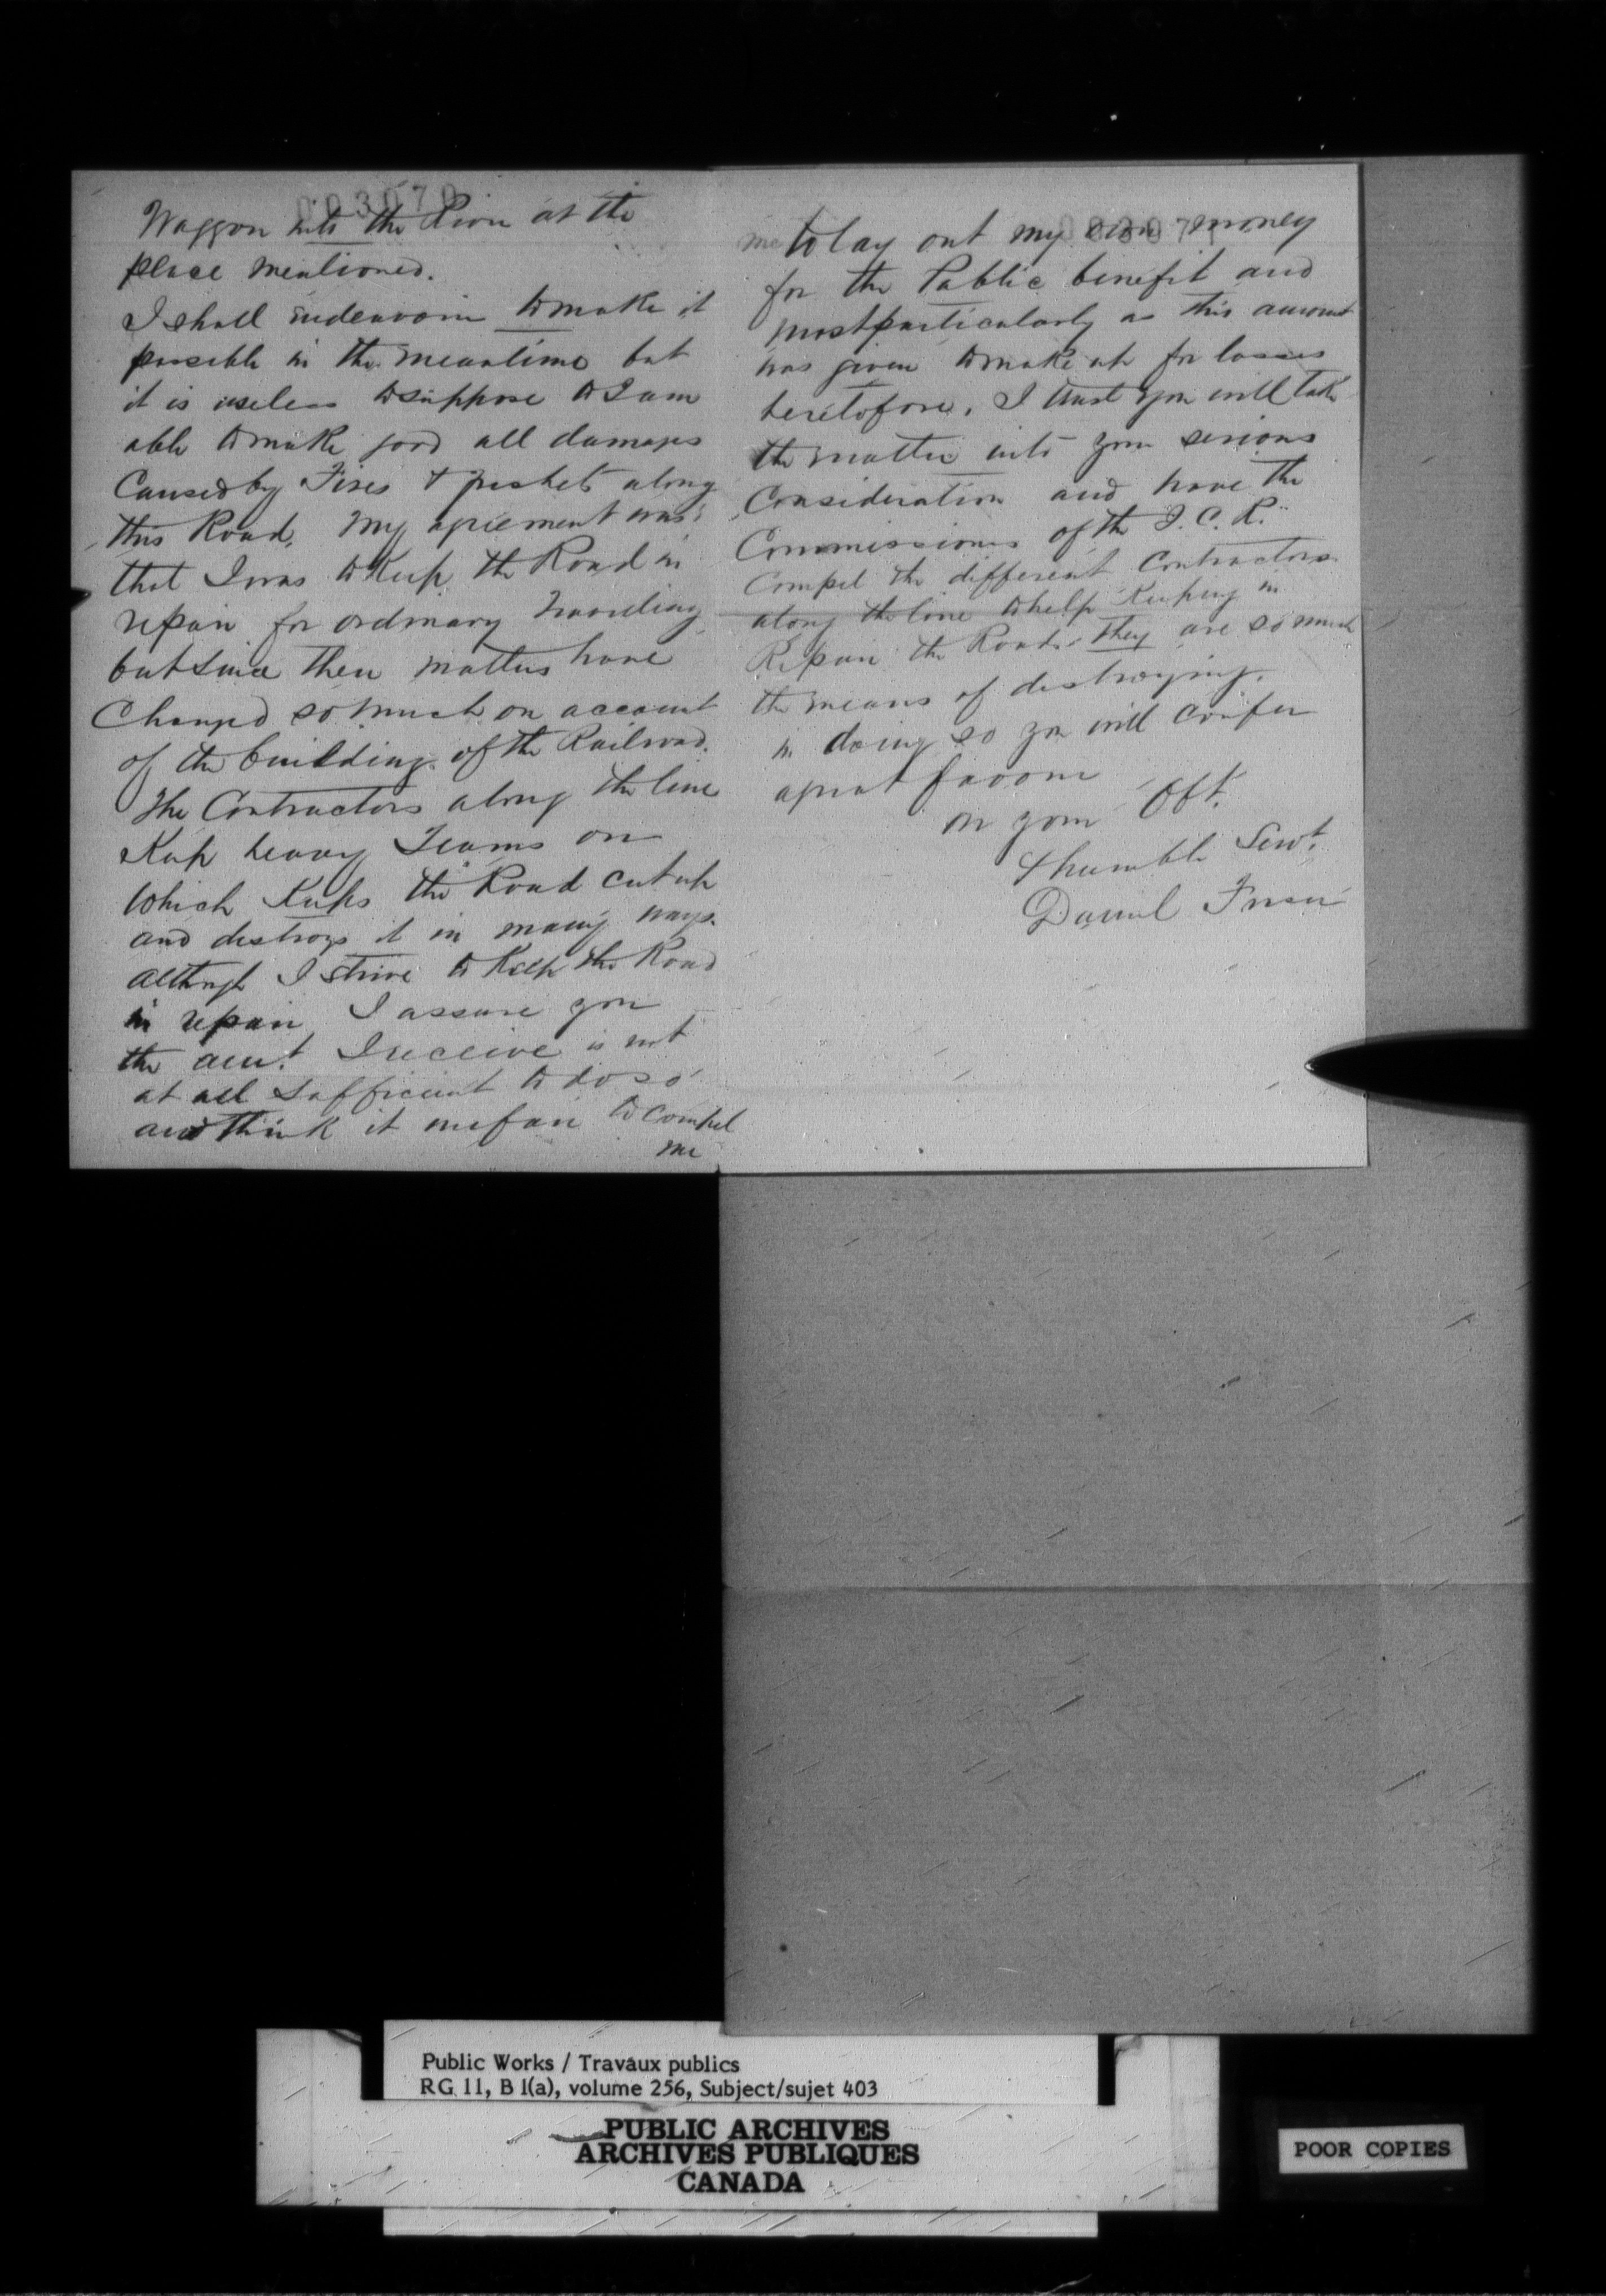 003070
Waggon into the River at the
place mentioned.
I shall endeavour to make it
possible in the meantime but
it is useless to suppose to I am
able to make good all damages
Caused by Fires & freshets along
this Road. My agreement was
that I was to Keep the Road in
repair for ordinary travelling
but since then matters have
Changed so much on account
of the building of the Railroad.
The Contractors along the line
Keep heavy Teams on
which Keeps the Road cut up
and destroys it in many ways.
Although I strive to Keep the Road
in repair I assure you
the amt. I receive is not
at all sufficient to do so
and think it unfair to compel
me
me to lay out my own money
for the Public benefit and
most particularly as this amount
was given to make up for losses
heretofore. I trust you will take
the matter into your serious
Consideration and have the
Commissioners of the I. C. R.
Compel the different Contractors
along the line to help Keeping in
Repair the Road they are so much
the means of destroying.
in doing so you will confer
a great favour
on your Obt.
& humble Servt.
Daniel Fraser
Public Works / Travaux publics
RG 11, B 1(a), volume 256, Subject/sujet 403
PUBLIC ARCHIVES
ARCHIVES PUBLIQUES
CANADA
POOR COPIES